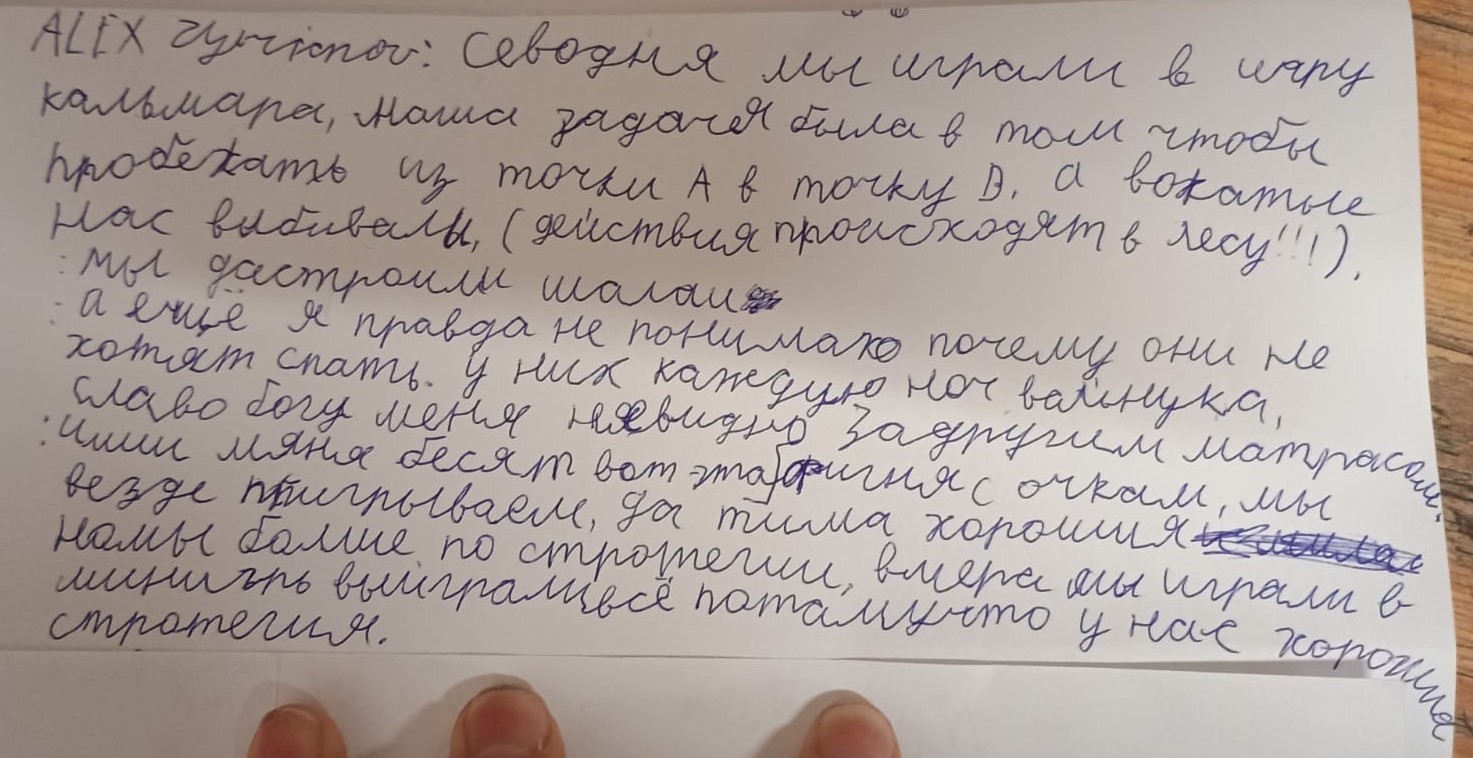 ALEX: Севодня мы играли в игру
кальмара, наша задача была в том чтобы
пробежать из точки А в точку В. а вожатые
нас выбивалы, (действия происходят в лесу!!!).
: мы дастроили шалаш
: а ещё я правда не понимаю почему они не
хотят спать. у них каждую ноч вайнука,
славо богу меня невидно за другим матрасом.
: ишши мяня бесят вот эта фигня с очкам, мы
везде приигрываем, да тима хорошия
но мы болше по стротегии, вчера мы играли в
мини игрь выиграли всё потамучто у нас хорошиа
стротегия.